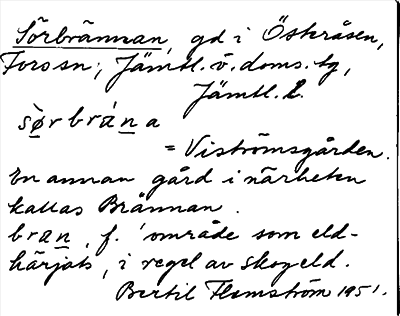 Sörbrännan, gd i Österåsen,
Fors sn, Jämtl. v. doms. tg,
Jämtl. l.
sø̀rbrána
= Viströmsgården.
En annan gård i närheten
kallas Brännan.
bran, f. 'område som eld-
härjats, i regel av skogseld.
Bertil Flemström 1951.